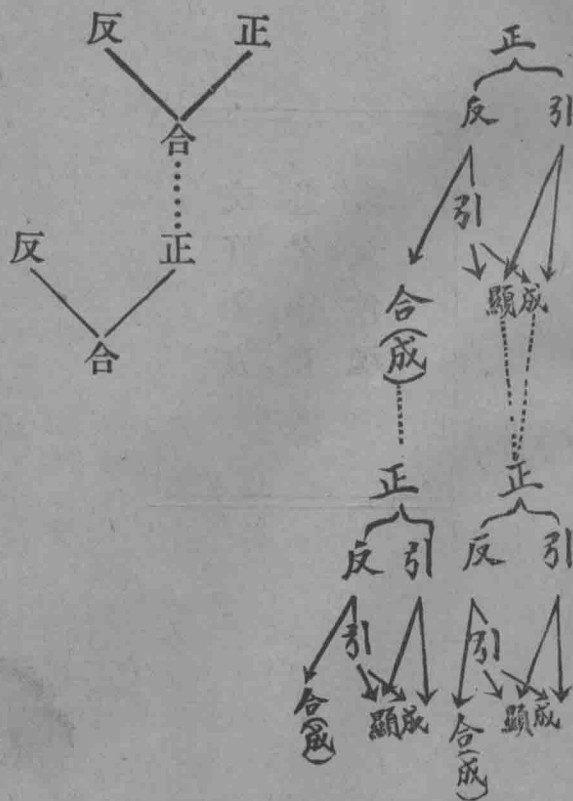 反 正
合
反 正
合
正
反 引
引
合(成) 顯成
正 正
反 引 反 引
引 引
合(成) 顯成 合(成) 顯成